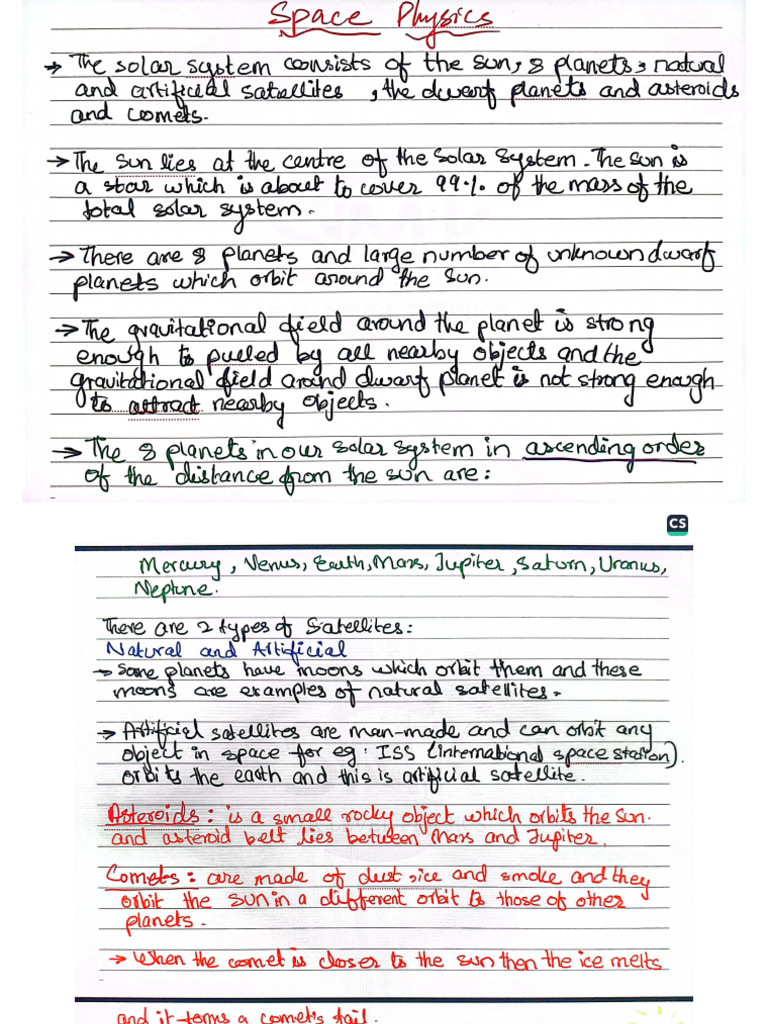 Space Physics
→ The solar system consists of the sun, 8 planets, natural
and artificial satellites, the dwarf planets and asteroids
and comets.
→ The sun lies at the centre of the solar system. The sun is
a star which is about to cover 99% of the mass of the
total solar system.
→ There are 8 planets and large number of unknown dwarf
planets which orbit around the sun.
→ The gravitational field around the planet is strong
enough to pulled by all nearby objects and the
gravitational field around dwarf planet is not strong enough
to attract nearby objects.
→ The 8 planets in our solar system in ascending order
of the distance from the sun are:
CS
Mercury, Venus, Earth, Mars, Jupiter, Saturn, Uranus,
Neptune.
There are 2 types of Satellites:
Natural and Artificial
→ Some planets have moons which orbit them and these
moons are examples of natural satellites.
→ Artificial satellites are man-made and can orbit any
object in space for eg: ISS (international space station).
orbits the earth and this is artificial satellite.
Asteroids: is a small rocky object which orbits the sun.
and asteroid belt lies between Mars and Jupiter.
Comets: are made of dust, ice and smoke and they
orbit the sun in a different orbit to those of other
planets.
→ When the comet is closer to the sun then the ice melts
and it forms a comet's tail.